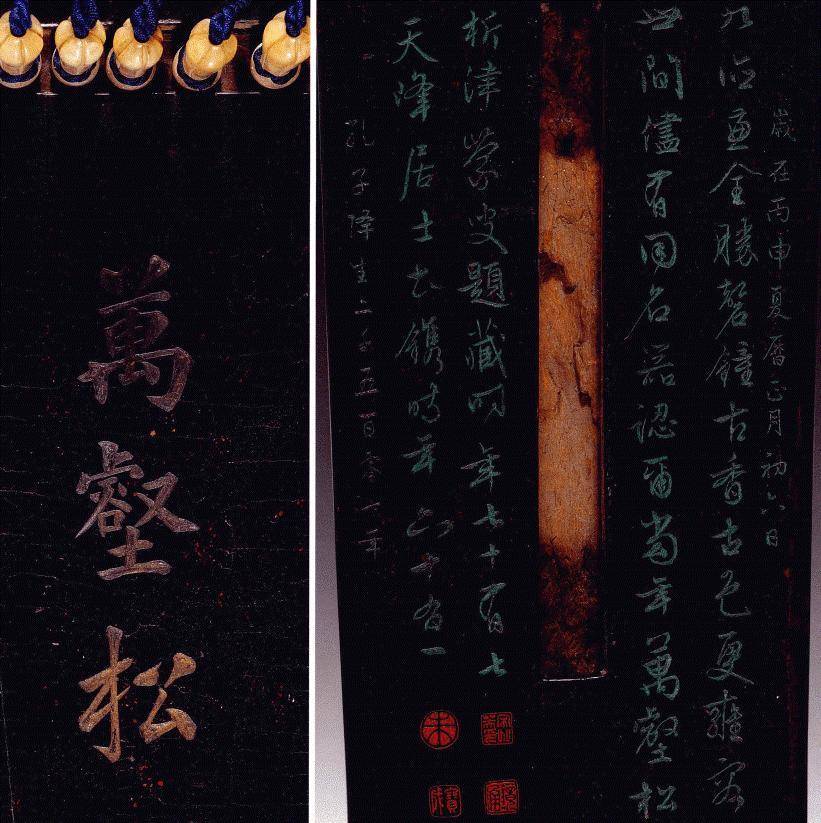 萬壑松
歲在丙申夏曆正月初六日
九德兼全勝磬鐘古香古色更雍容
世間儘有同名器認爾當年萬壑松
析津蒙叟題藏時年七十有七
天峰居士書鐫時年六十有一
孔子降生二千五百零七年
朱